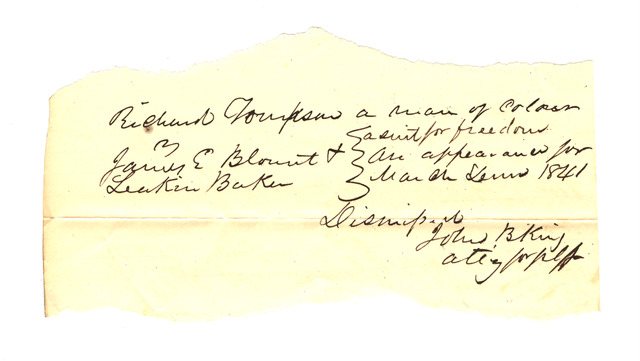 Richard Tompson a man of Colour
vs
James E Blount &
Leakin Baker
a suit for freedom
An appearance for
March Term 1841
Dismissed
John B King
atty for plff